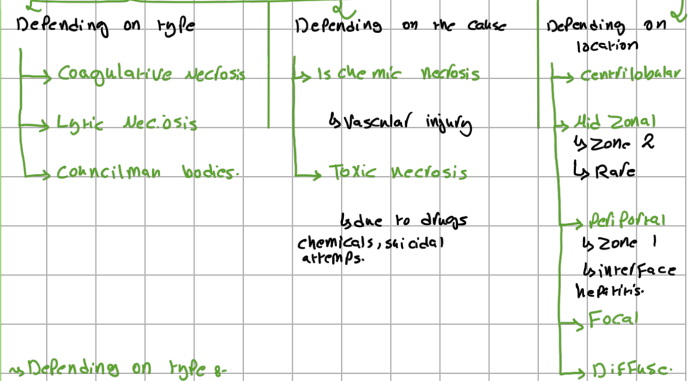 Depending on type
→ Coagulative Necrosis
→ Lytic Necrosis
→ Councilman bodies.
Depending on the cause
→ Ischemic necrosis
↳ Vascular injury
→ Toxic necrosis
↳ due to drugs
chemicals, suicidal
attemps.
Depending on
location
→ Centrilobular
→ Mid Zonal
↳ Zone 2
↳ Rare
→ Periportal
↳ Zone 1
↳ interface
hepatitis.
→ Focal
→ Diffuse.
⇝ Depending on type :-